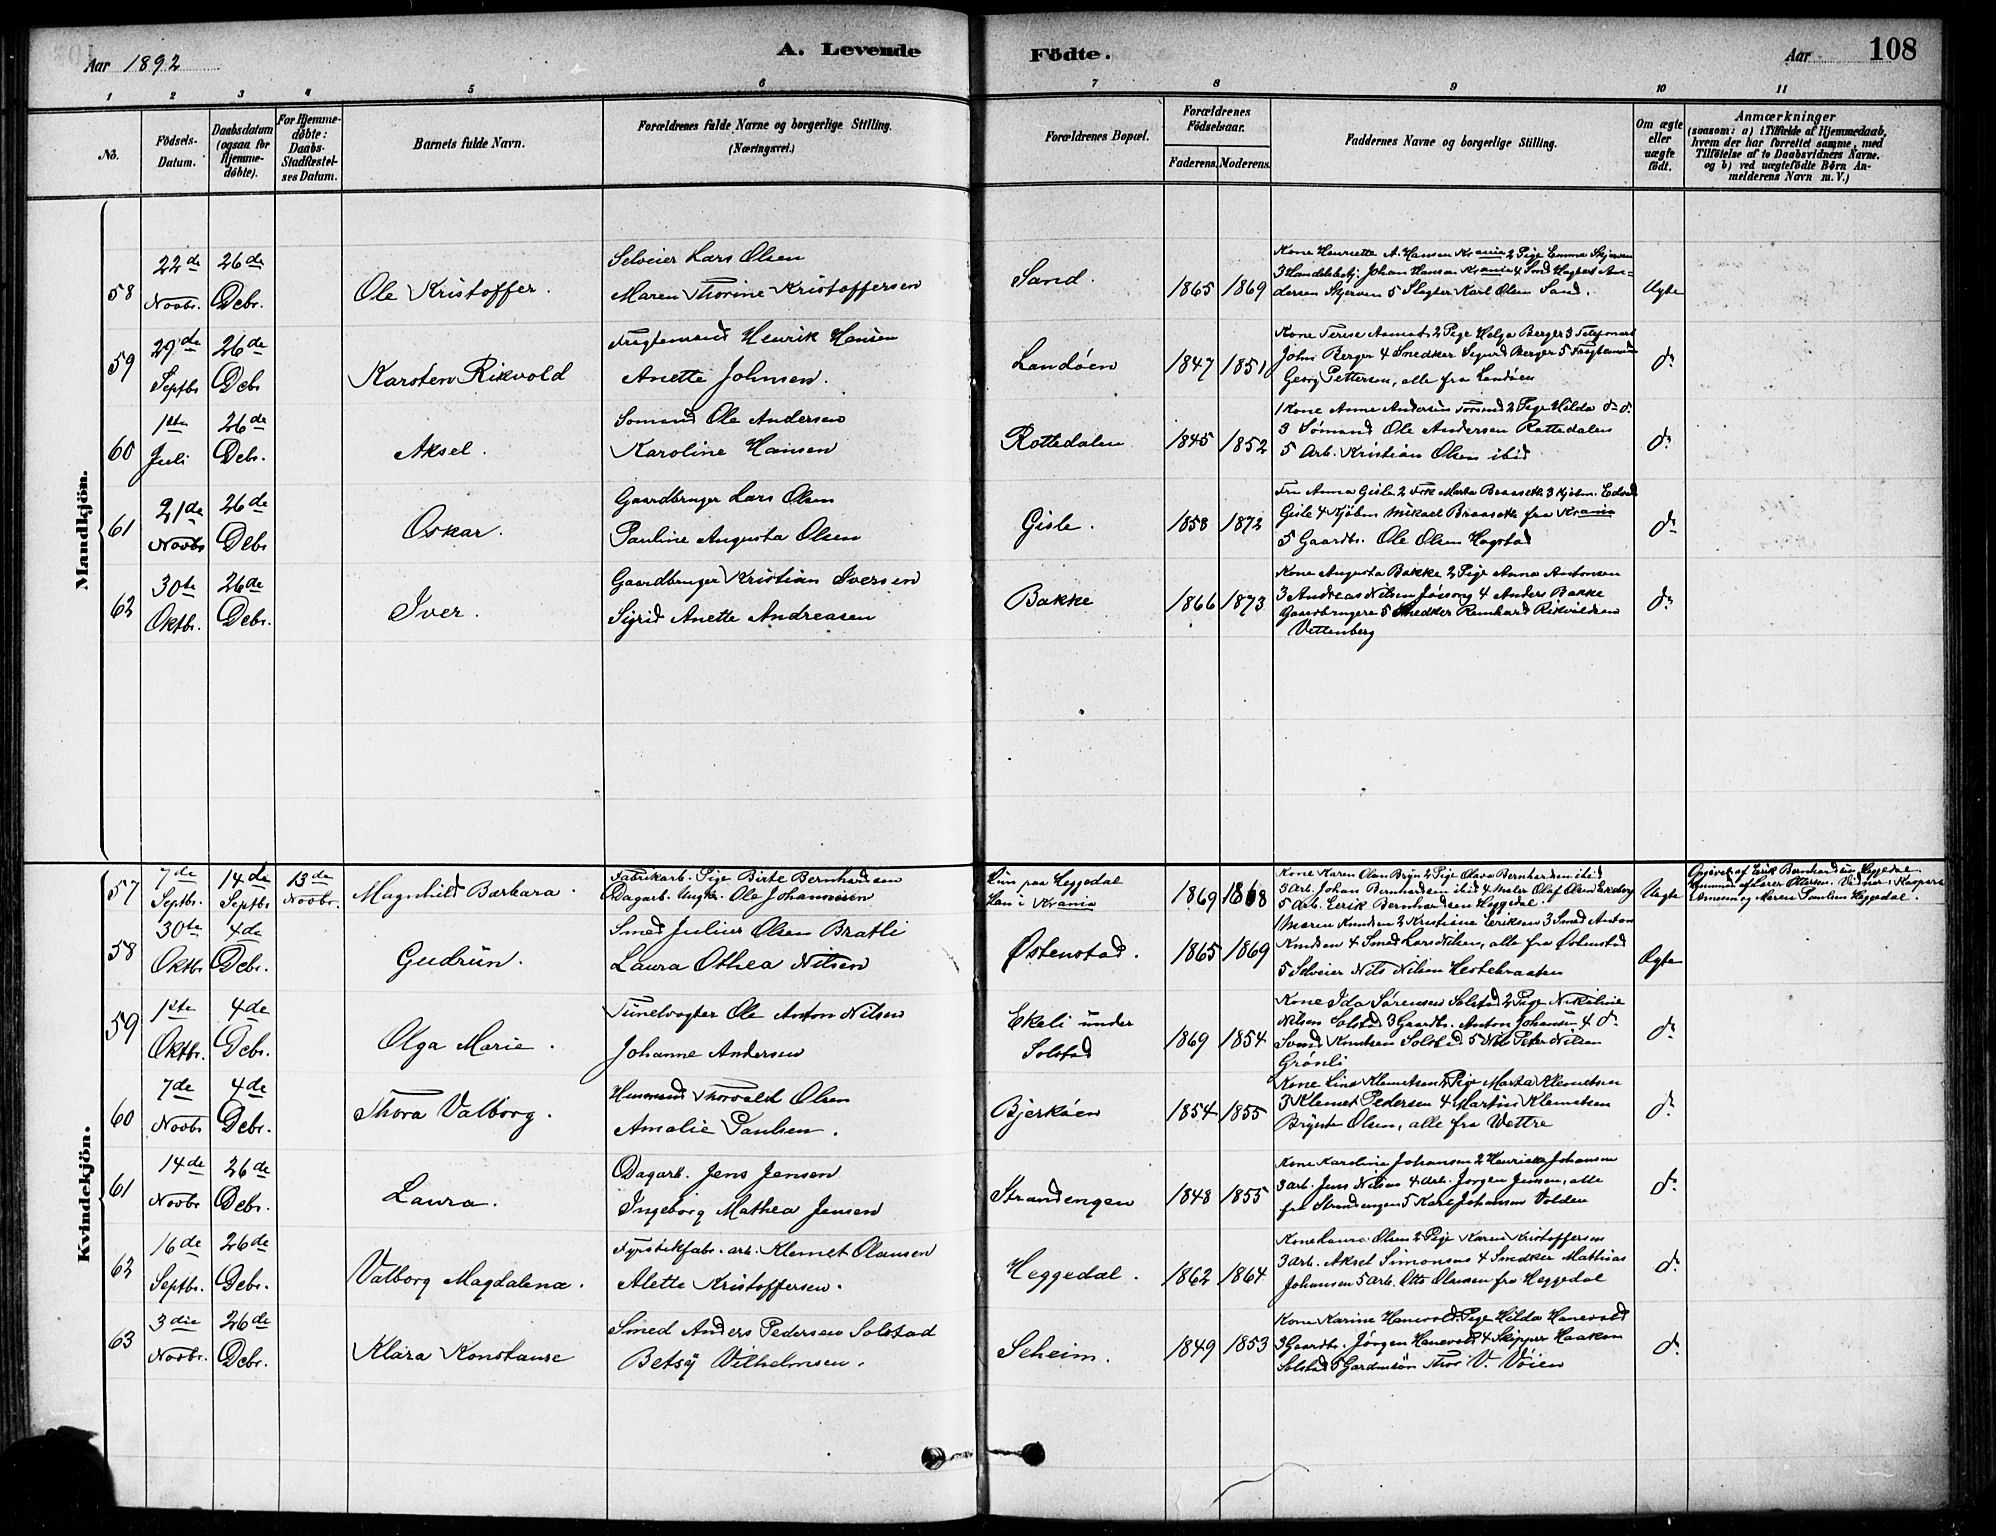 Aar 1892
A. Levende
Födte.
Aar
108
1 2 3 4 5 6 7 8 9 10 11
No.
Födsels-
Datum.
Daabsdatum
(ogsaa for
Hjemme-
döbte).
For Hjemme-
döbte:
Daabs-
Stadfæstel-
ses Datum.
Barnets fulde Navn.
Forældrenes fulde Navne og borgerlige Stilling.
(Næringsvei.)
Forældrenes Bopæl.
Forældrenes
Födselsaar.
Faderens. Moderens.
Faddernes Navne og borgerlige Stilling.
Om ægte
eller
uægte
födt.
Anmærkninger
(saasom: a) i Tilfælde af Hjemmedaab,
hvem der har forrettet samme, med
Tilföielse af to Daabsvidners Navne,
og b) ved uægtefödte Börn An-
melderens Navn m. V.)
Mandkjön.
58
22de
Novbr.
26de
Debr.
Ole Kristoffer.
Selveier Lars Olsen
Maren Thorine Kristoffersen
Sand.
1865 1869
Kone Henriette A. Hansen Krania 2 Pige Emma Skjerven
3 Handelsbetj. Johan Hansen Krania 4 Smed Hagbart An-
dersen Skjerven 5 Slagter Karl Olsen Sand.
Ægte
59
29de
Septbr
26de
Debr
Karsten Rikvold
Fragtemand Henrik Hansen
Anette Johnsen.
Landöen
1847 1851
Kone Terese Aamot 2 Pige Helga Berger 3
John Berger 4 Snedker Sigurd Berger 5 Fragtemand
Georg Pettersen, alle fra Landöen
do
60
1ste
Juli
26de
Debr.
Aksel.
Sömand Ole Andersen
Karoline Hansen
Rottedalen
1845 1852
1 Kone Anne Andersen 2 Pige Hilda do do
3 Sömand Ole Andersen Rottedalen
5 Arb. Kristian Olsen ibid
do
61
21de
Novbr
26de
Debr
Oskar.
Gaardbruger Lars Olsen
Pauline Augusta Olsen
Gisle.
1858 1872
Fru Anna Gisle 2 Frk Marta Braaseth 3 Kjöbm. Edvard
Gisle 4 Kjöbm Mikael Braaseth fra Krania
5 Gaardbr. Ole Olsen Hogstad
do
62
30te
Oktbr.
26de
Debr.
Iver.
Gaardbruger Kristian Iversen
Sigrid Anette Andreasen
Bakke
1866 1873
Kone Augusta Bakke 2 Pige Anna Antonsen
3 Andreas Nilsen Jössong 4 Anders Bakke
Gaardbrugere 5 Snedker Reinhard Rikvildsen
Vettenberg
do
Kvindekjön.
57
7de
Septbr.
14de
Septbr
13de
Novbr.
Magnhild Barbara.
Fabrikarb. Pige Birte Bernhardsen
Dagarb. Ungk. Ole Johannesen
Hun paa Heggedal
Han i Krania
1869 1868
Kone Karen Olsen Bryn 2 Pige Olava Bernhardsen ibid
3 Arb. Johan Bernhardsen ibid 4 Maler Olaf Olsen
5 Arb. Eerik Bernhardsen Heggedal.
Uægte
Opgivet af Erik Bernhardsen Heggedal
58
30te
Oktbr
4de
Debr.
Gudrun.
Smed Julius Olsen Bratli
Laura Othea Nilsen
Östenstad.
1865 1869
1 Maren Knudsen 2 Kristiane Eriksen 3 Smed Anton
Knudsen 4 Smed Lars Nilsen, alle fra Östenstad
5 Selveier Nils Nilsen Hestebraaten
Ægte
59
1ste
Oktbr.
4de
Debr.
Olga Marie.
Tunelvogter Ole Anton Nilsen
Johanne Andersen
Ekeli under
Solstad
1869 1854
Kone Ida Sörensen Solstad 2 Pige Nikoline
Nilsen Solstad 3 Gaardbr. Anton Johansen 4 do
Svend Knudsen Solstad 5 Nils Peter Nilsen
Grönli
do
60
7de
Novbr
4de
Debr.
Thora Valborg.
Husmand Thorvald Olsen
Amalie Paulsen.
Bjerköen
1854 1855
Kone Lina Klemetsen 2 Pige Marta Klemetsen
3 Klemet Pedersen 4 Martin Klemetsen
Olsen, alle fra Vettre
do
61
14de
Novbr
26de
Debr.
Laura.
Dagarb. Jens Jensen
Ingeborg Mathea Jensen
Strandengen
1848 1855
Kone Karoline Johansen 2 Henrikke Johansen
3 arb. Jens Nilsen 4 arb. Jørgen Jensen, alle
fra Strandengen 5 Karl Johansen Volden
do
62
16de
Septbr.
26de
Debr.
Valborg Magdalena.
Fyrstikfabr. arb. Klemet Olausen
Alette Kristoffersen.
Heggedal.
1862 1864
Kone Laura Olsen 2 Pige Karen Kristoffersen
3 arb. Aksel Simonsen 4 Snedker Mathias
Johansen 5 arb. Otto Olausen fra Heggedal
do
63
3die
Novbr.
26de
Debr.
Klara Konstanse
Smed Anders Pedersen Solstad
Betsy Vilhelmsen.
Seheim.
1849 1853
Kone Karine Hanevold 2 Pige Hilda Hanevold
3 Gaardbr. Jörgen Hanevold 4 Skipper Haakon
Solstad 5 Gardmsön Thor V. Vöien
do